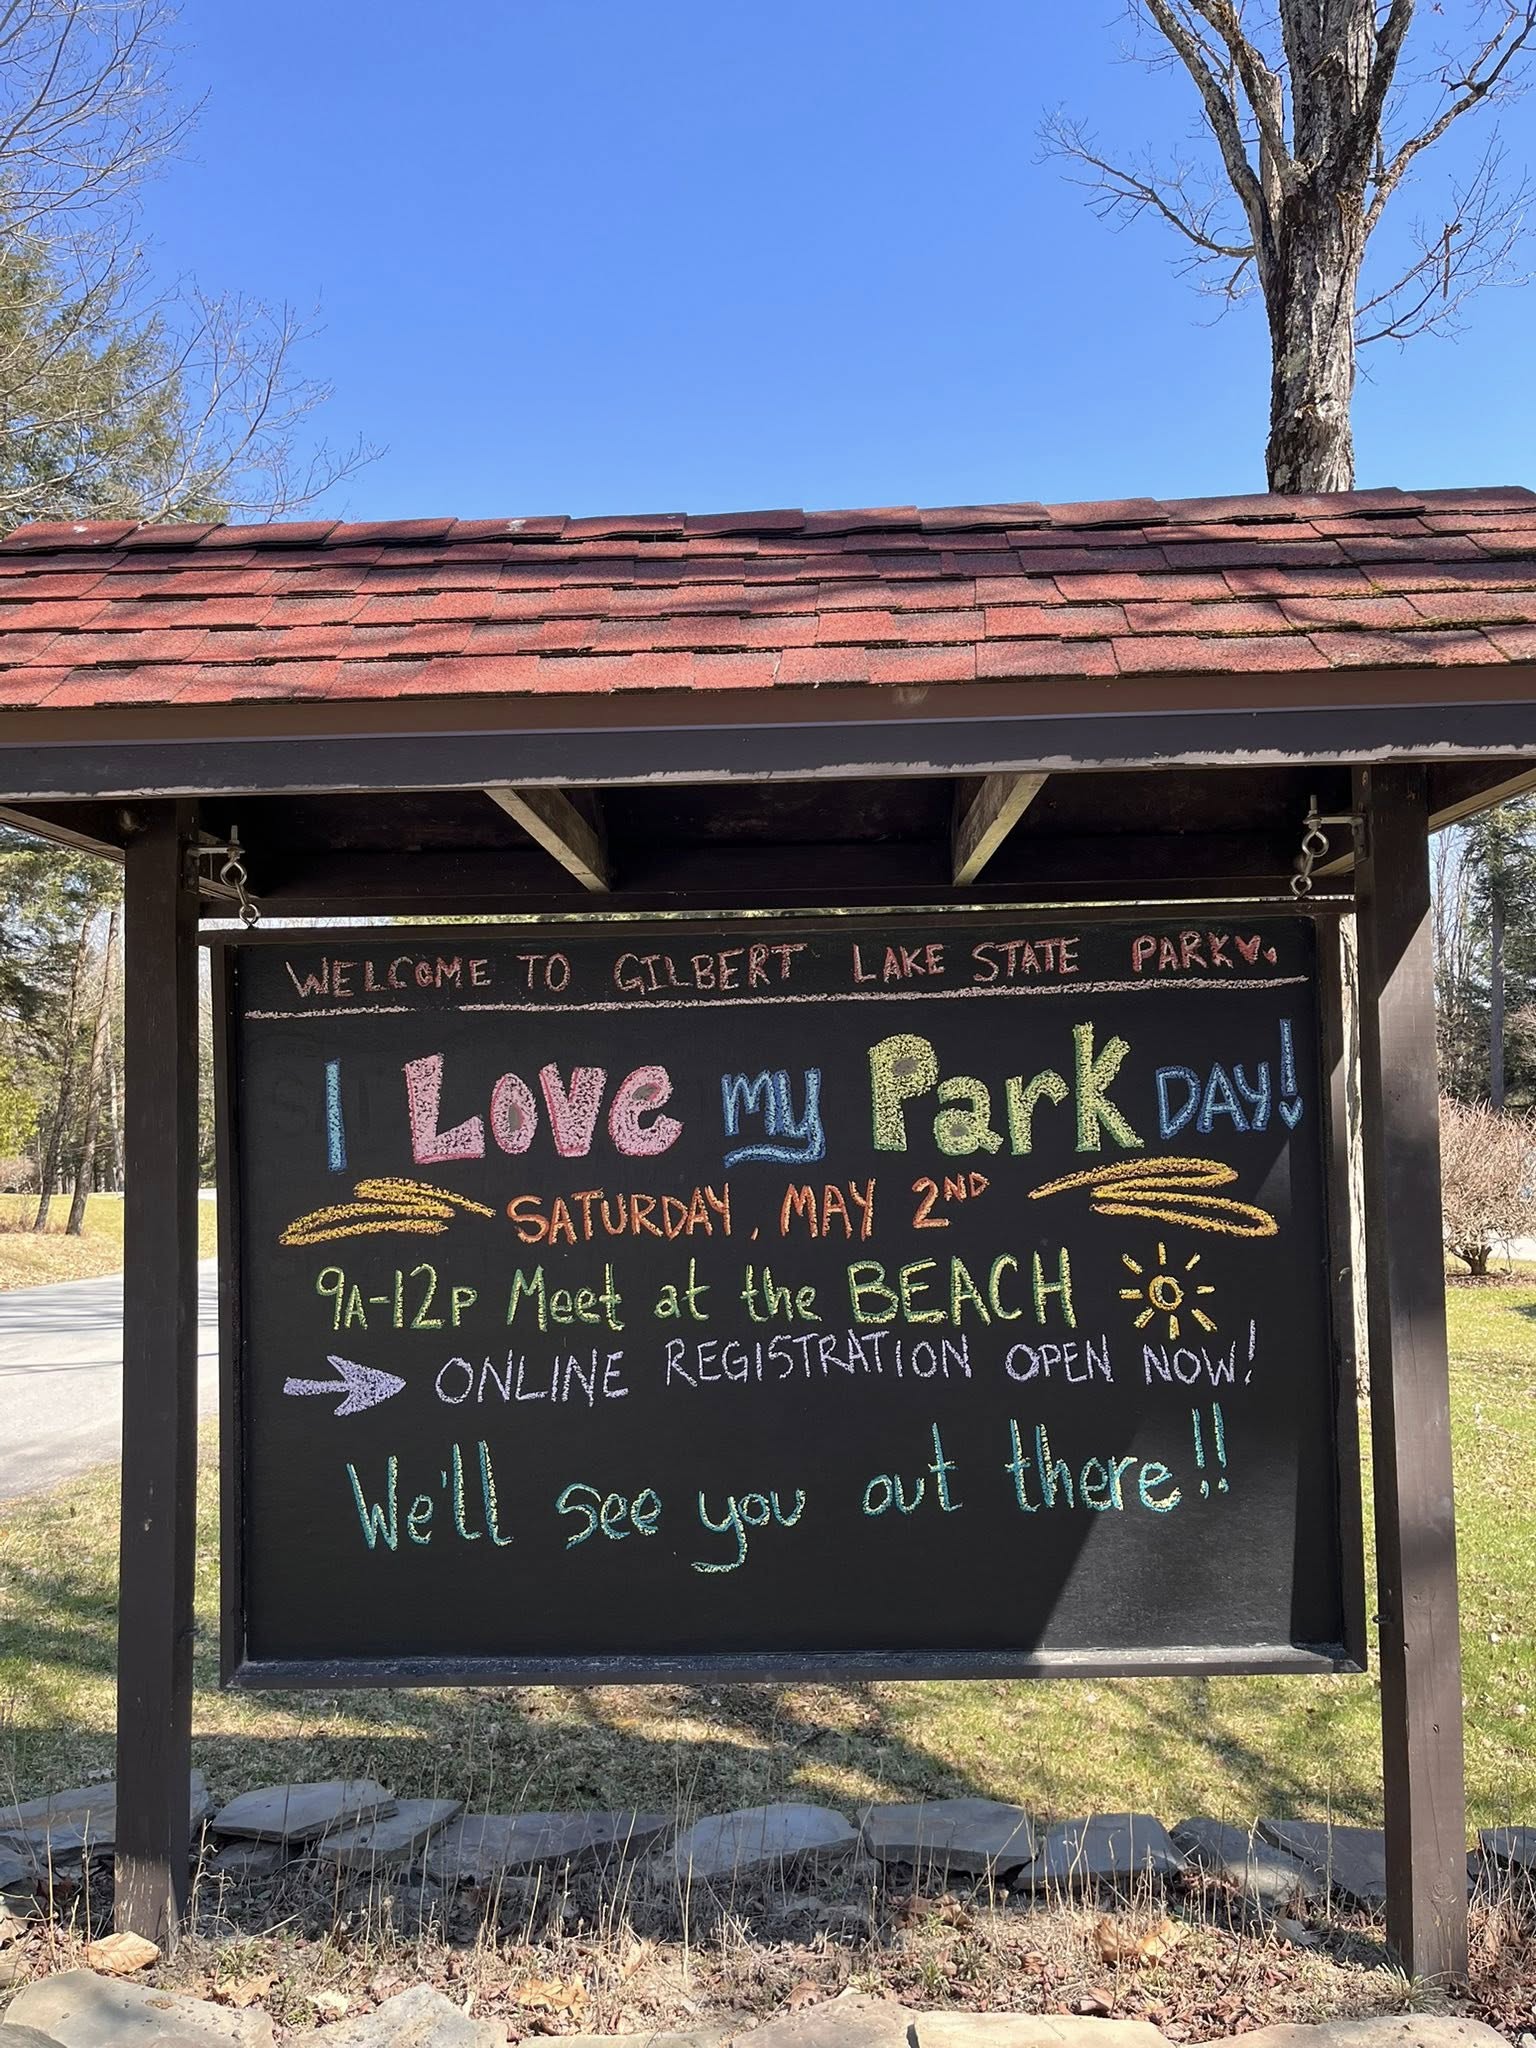 WELCOME TO GILBERT LAKE STATE PARK
I Love my Park DAY!
SATURDAY, MAY 2ND
9A-12P Meet at the BEACH
ONLINE REGISTRATION OPEN NOW!
We'll see you out there!!